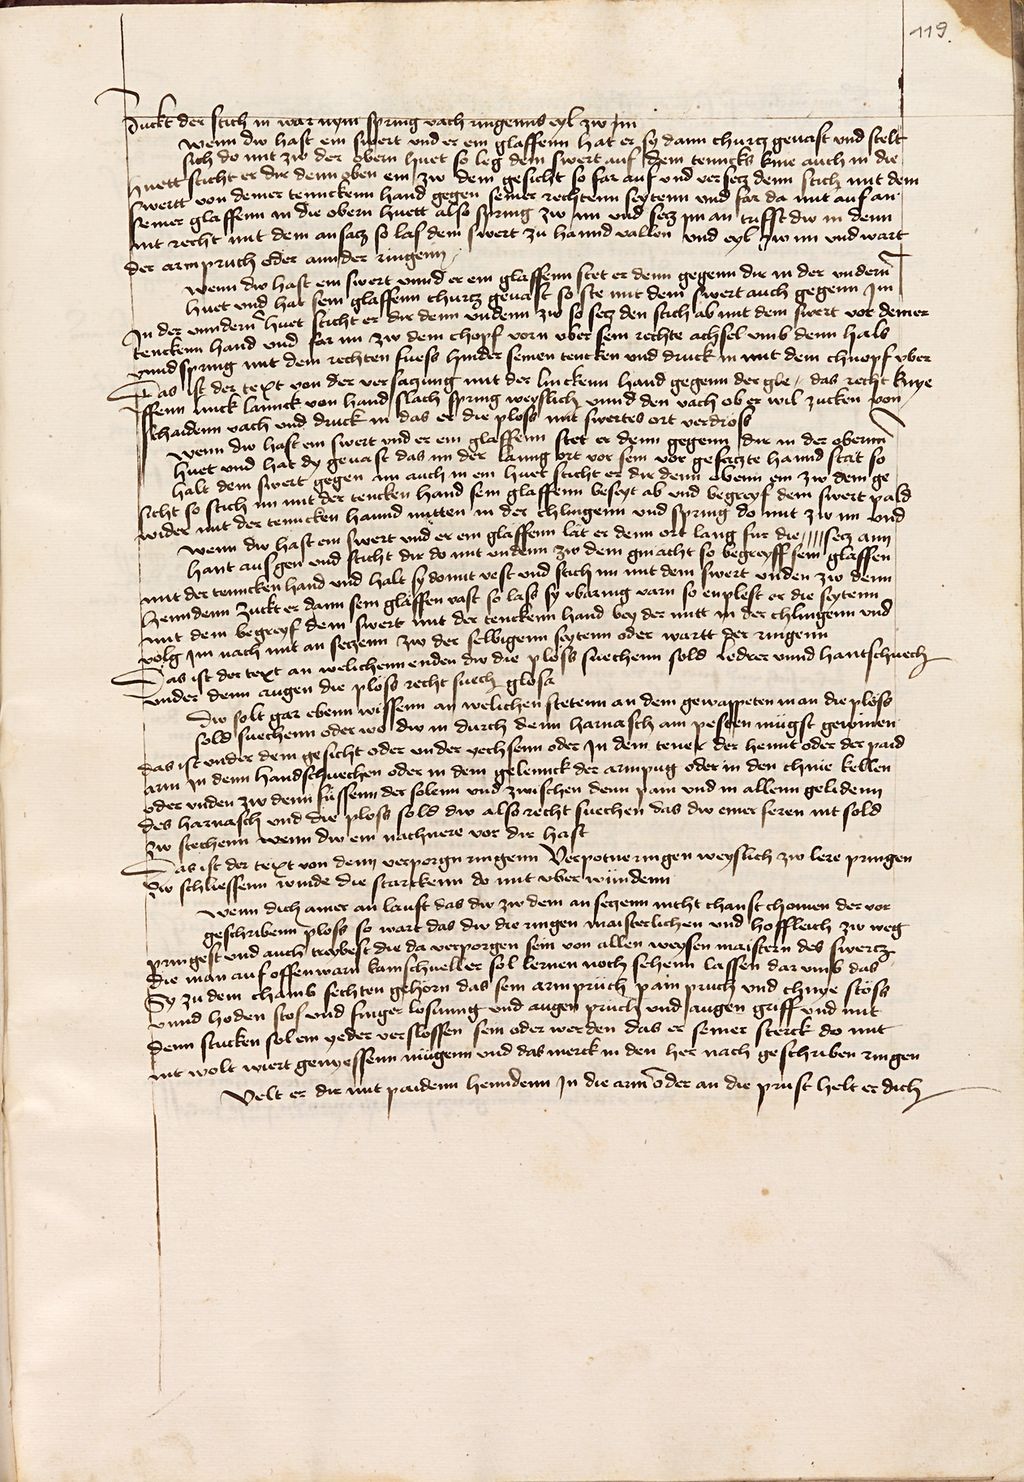 119.
Zuckt der stich in war nym spring vach ringenns eyl zw Im
Wenn dw hast ein swert und er ein glaffenn hat er sy dann churcz gevast und stelt
sich do mit zw der obern huet so leg dein swert auf dein tenncks knie auch in die
huett sticht er dir denn oben ein zw dem gesicht so far auf und versecz denn stich mit dem
swertt von deiner tennckenn hand gegen seiner rechtenn seyttenn und far da mit auf an
seiner glaffenn in die obern huett also spring zw im und secz im an trifft dw in denn
nit recht mit dem ansacz so las dein swert zu hannd vallen und eyl zw im und wart
der arm pruch oder annder ringenn
Wenn dw hast ein swert unnd er ein glaffenn stet er denn gegenn dir in der undern
huet und hat sein glaffenn churcz gevast so ste mit dem swert auch gegenn Im
In der unndern huet sticht er dir denn undenn zw so secz den stich ab mit dem swert vor deiner
tenckenn hand und far im zw dem chopf vorn uber sein rechte achsel umb denn hals
unnd spring mit dem rechten fuess hinder seinen tencken und druck in mit dem chnopf uber
Das ist der text von der versaczung mit der linckenn hand gegenn der gle / das recht knye
ffenn linck lannck von hand slach spring weyslich unnd den vach ob er wil zucken von
schaidenn vach und druck in das er die ploss mit swertes ort verdross
Wenn dw hast ein swert und er ein glaffenn stet er denn gegenn dir in der obernn
huet und hat dy gevast das im der lanng ort vor sein vor gesaczte hannd stat so
halt dein swert gegen im auch in ein huet sticht er dir denn obenn ein zw dem ge
sicht so stich im mit der tencken hand sein glaffenn beseyt ab und begreyf dein swert pald
wider mit der tenncken hannd mitten in der chlingenn und spring do mit zw im und
Wenn dw hast ein swert und er ein glaffenn lät er denn ort lang für die //// secz ann
hant aus gen und sticht dir do mit undenn zw dem gmächt so begreyff sein glaffen
mit der tenncken hand und halt sy domit vest und stich im mit dem swert unden zw denn
henndenn zuckt er dann sein glaffen vast so lass sy ubaring varn so enplest er die seytenn
mit dem begreyf dein swert mit der tenckenn hand bey der mitt in der chlingenn und
volg Im nach mit an seczenn zw der selbigenn seytenn oder wartt der ringenn
Das ist der text an welichenn enden dw die plöss suechenn sold Ledrer unnd hantschuech
under denn augen die plöss recht suech glosa
Dw solt gar ebenn wissenn an welichen stetenn an dem gewappeten man die plöss
sold suechenn oder wo dw in durch denn harnasch am pesten mügst gewinen
das ist under dem gesicht oder under yechsenn oder In dem tener der hennt oder der paid
arm in denn handschuechen oder in dem gelennck der armpug oder in den chnie kellen
oder unden zw denn füssenn der solenn und zwischen denn pain und in allenn gelidenn
des harnasch und die ploss sold dw also recht suechen das dw einer feren nit sold
zw stechenn wenn dw ein nachnere vor dir hast
Das ist der text von denn verporgn ringenn Verpotne ringen weyslich zw lere pringen
zw schliessenn vinde die starckenn do mit uber winndenn
Wenn dich ainer an lauft das dw zw dem an seczenn nicht chanst chomen der vor
geschribenn ploss so wart das dw die ringen maisterlichen und hoffleich zw weg
pringest und auch treybest die da verporgen sein von allen weysen maistern des swercz
Die man auf offenwarn kamschueller sol lernen noch sehenn lassen dar umb das
Sy zu dem champ fechten gehörn das sein armpruch pain pruch und chnye stöss
unnd hoden stos und finger losung und augen pruch und augen griff und mit
denn stucken sol ein yeder verslossen sein oder werden das er seiner sterck do mit
nit wolt wiert genyessenn mügenn und das merck in den her nach geschriben ringen
Velt er dir mit paidenn henndenn In die arm oder an die prust helt er dich